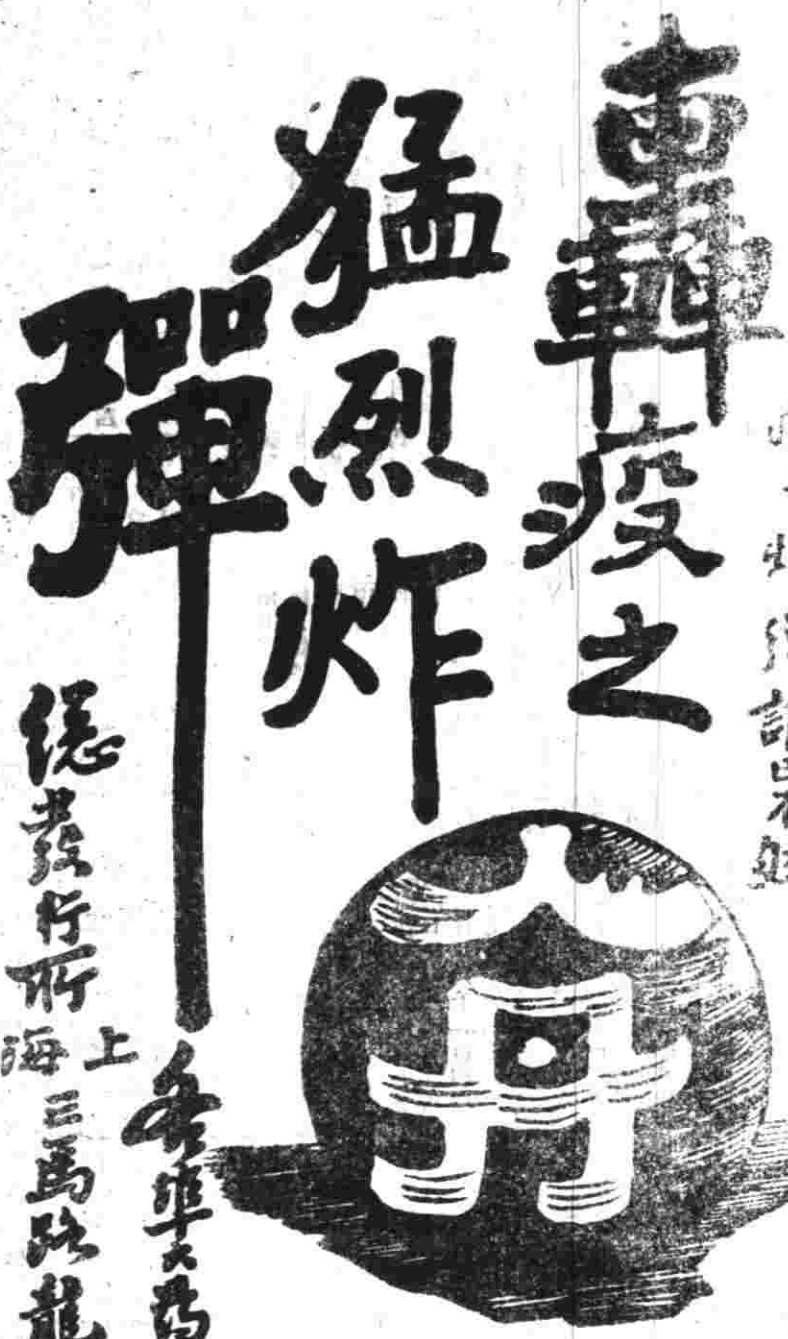 轟疫之
猛烈炸
彈
人丹
各埠大
總發行所
上海
三馬路龍